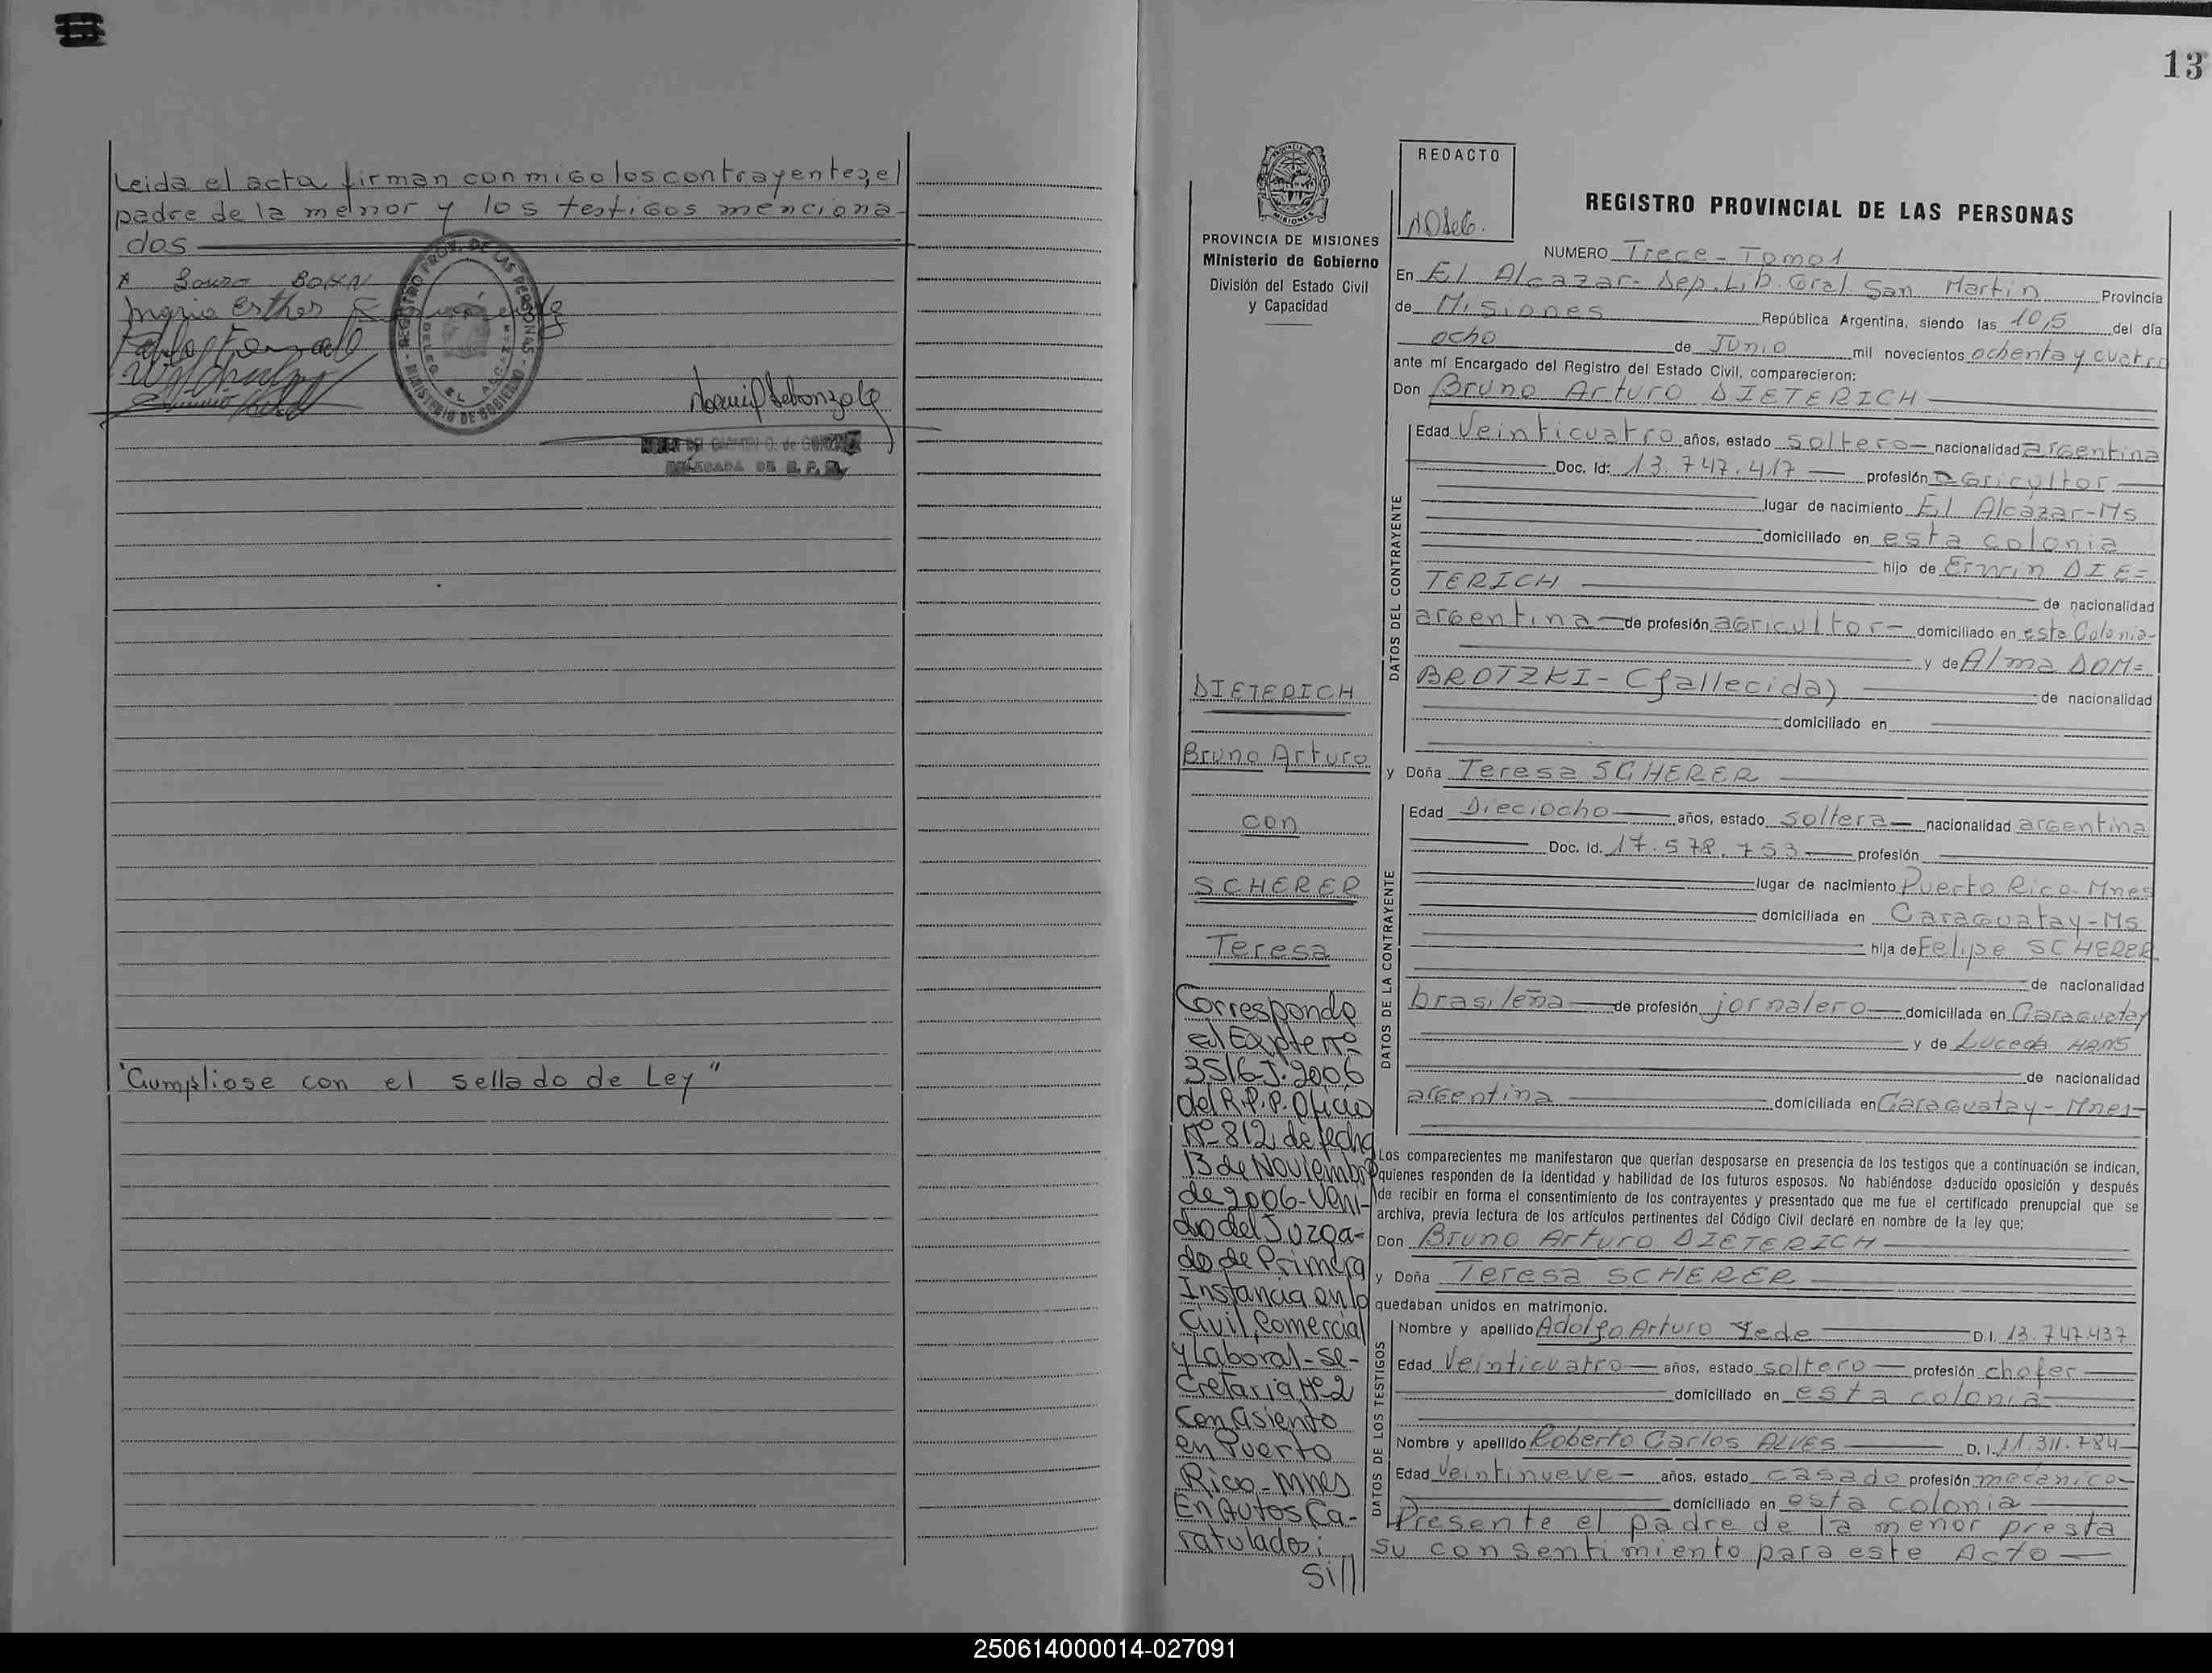 Leida el acta firman conmigo los contrayentes, el
padre de la menor y los testigos menciona
dos
Ingrid Esther
REGISTRO PROV. DE LAS PERSONAS
MINISTERIO DE GOBIERNO
DELEGADA DE R. P. P.
"Cumpliose con el sellado de Ley"
13
PROVINCIA DE MISIONES
Ministerio de Gobierno
División del Estado Civil
y Capacidad
REDACTO
REGISTRO PROVINCIAL DE LAS PERSONAS
NUMERO Trece - Tomo 1
En El Alcazar - Dep. Lib. Gral. San Martin Provincia
de Misiones República Argentina, siendo las 10,5 del día
ocho de Junio mil novecientos ochenta y cuatro
ante mí Encargado del Registro del Estado Civil, comparecieron:
Don Bruno Arturo DIETERICH
DATOS DEL CONTRAYENTE
Edad Veinticuatro años, estado soltero - nacionalidad argentina
Doc. Id: 13.747.417 profesión agricultor
lugar de nacimiento El Alcázar - Ms
domiciliado en esta colonia
hijo de Erwin DIE=
TERICH de nacionalidad
argentina de profesión agricultor - domiciliado en esta Colonia -
y de Alma DOM=
BROTZKI - (fallecida) de nacionalidad
domiciliado en
y Doña Teresa SCHERER
DATOS DE LA CONTRAYENTE
Edad Dieciocho años, estado soltera - nacionalidad argentina
Doc. Id. 17.578.753 profesión
lugar de nacimiento Puerto Rico - Mnes
domiciliada en Caraguatay - Ms
hija de Felipe SCHERER
de nacionalidad
brasileña de profesión jornalero domiciliada en Caraguatay
y de HANS
de nacionalidad
argentina domiciliada en Caraguatay - Mnes -
Los comparecientes me manifestaron que querían desposarse en presencia de los testigos que a continuación se indican,
quienes responden de la identidad y habilidad de los futuros esposos. No habiéndose deducido oposición y después
de recibir en forma el consentimiento de los contrayentes y presentado que me fue el certificado prenupcial que se
archiva, previa lectura de los artículos pertinentes del Código Civil declaré en nombre de la ley que;
Don Bruno Arturo DIETERICH
y Doña Teresa SCHERER
quedaban unidos en matrimonio.
DATOS DE LOS TESTIGOS
Nombre y apellido Adolfo Arturo Yede D. I. 13.747.437
Edad Veinticuatro años, estado soltero profesión chofer
domiciliado en esta colonia
Nombre y apellido Roberto Carlos ALVES D. I. 11.311.784
Edad Veintinueve - años, estado casado profesión mecánico -
domiciliado en esta colonia
Presente el padre de la menor presta
su consentimiento para este Acto
DIETERICH
Bruno Arturo
con
SCHERER
Teresa
Corresponde
al Expte nº
3516-J-2006
del R.P.P. Oficio
Nº 812 de fecha
13 de Noviembre
de 2006 - Veni-
do del Juzga-
do de Primera
Instancia en lo
Civil, Comercial
y Laboral - Se-
cretaria Nº 2
Con asiento
en Puerto
Rico - Mnes
En Autos Ca-
ratulados:
Si///
250614000014-027091